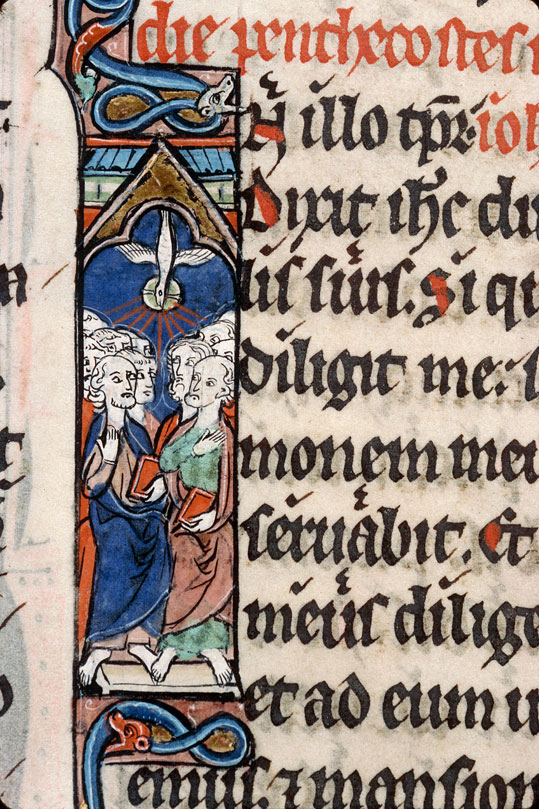 die penthecostes
N illo tp̄r. ioh
Dixit ih̄c di
lis suis. Si qu
diligit me: s
monem meu
seruabit. Et
meus dilige
et ad eum u
emus. ⁊ mansion